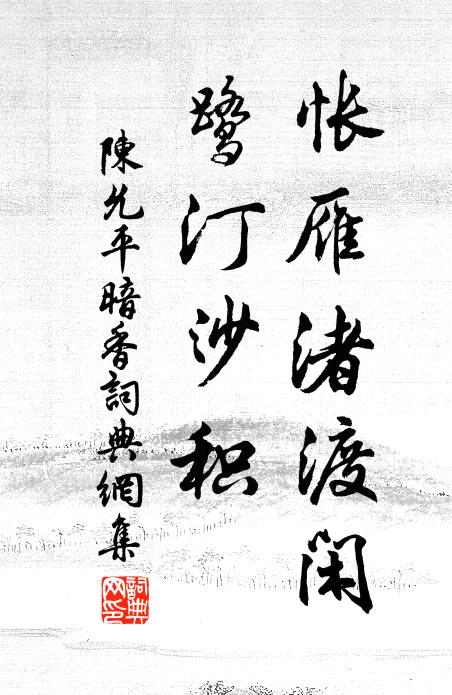 怅雁渚渡闲
鹭汀沙积
陳允平暗香詞典網集
詞典网印